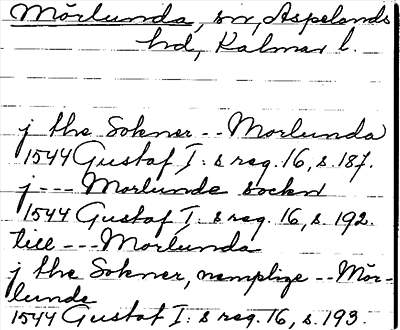 Mörlunda, sn, Aspelands
hd, Kalmar l.
j the Sokner -- Morlunda
1544 Gustaf I:s reg. 16, s. 187.
j --- Morlunde sockn
1544 Gustaf I:s reg. 16, s. 192.
till --- Morlunda
j the Sokner, nemplige -- Mör-
lunde
1544 Gustaf I:s reg. 16, s. 193.